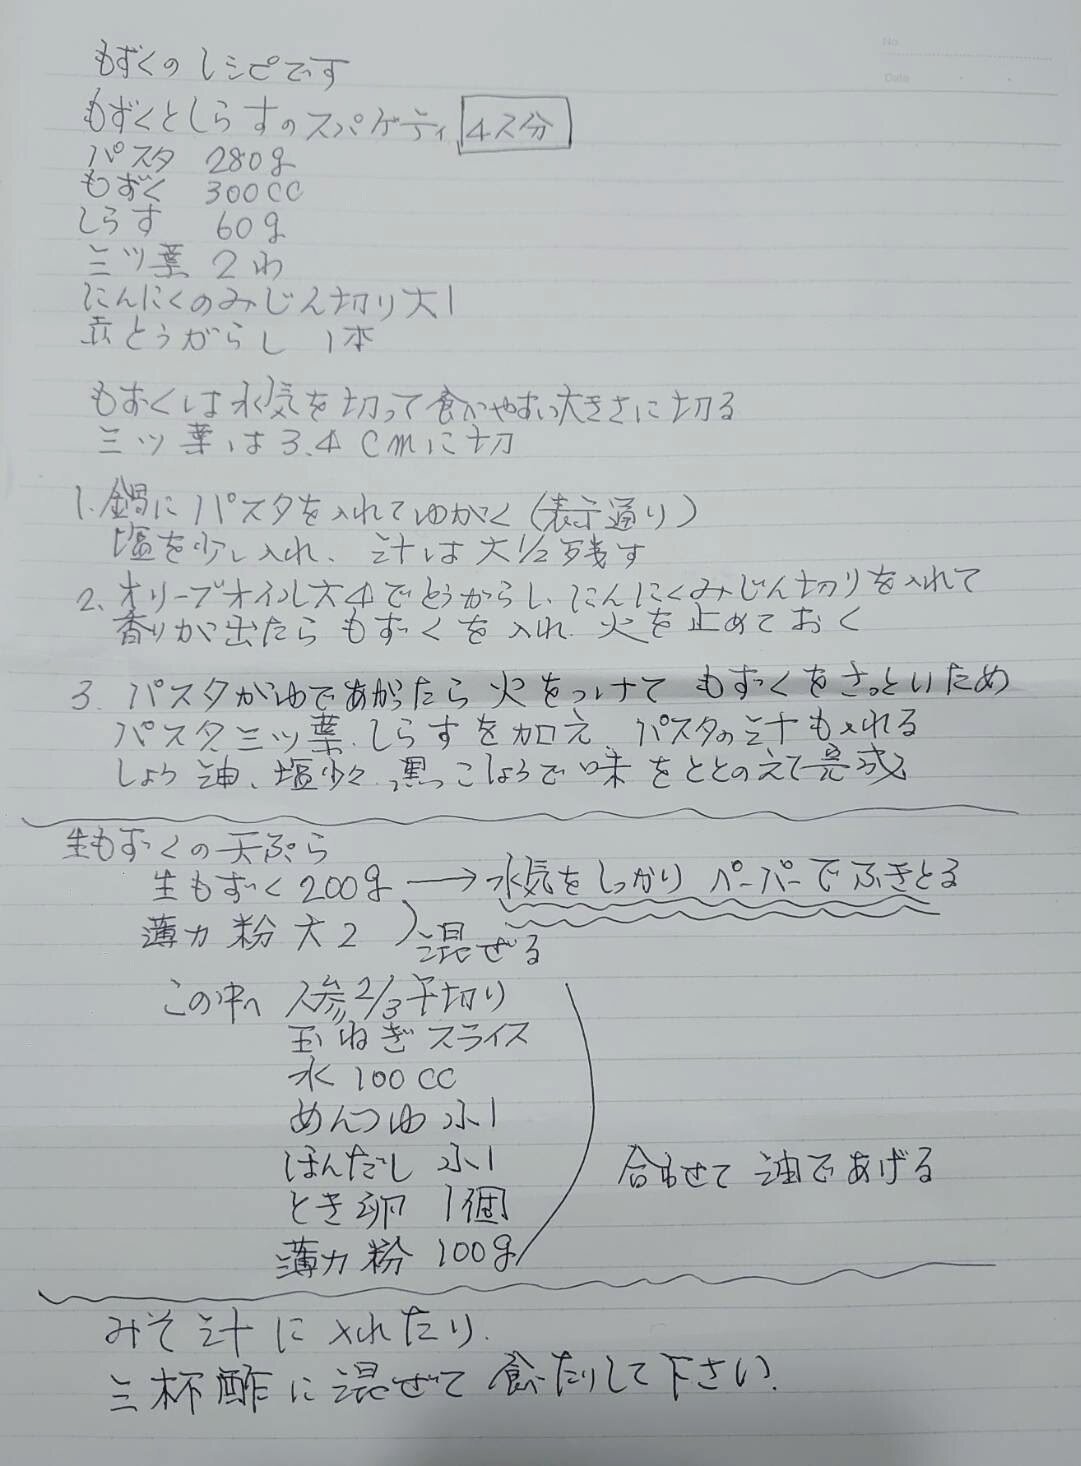 No.
Date
もずくのレシピです
もずくとしらすのスパゲティ 4人分
パスタ 280g
もずく 300CC
しらす 60g
三ツ葉 2わ
にんにくのみじん切り大1
赤とうがらし 1本
もずくは水気を切って食べやすい大きさに切る
三ツ葉は3.4cmに切
1.鍋にパスタを入れてゆがく(表示通り)
塩を少し入れ、汁は大1/2残す
2.オリーブオイル大4でとうがらし、にんにくみじん切りを入れて
香りが出たらもずくを入れ火を止めておく
3.パスタがゆであがったら火をつけてもずくをさっといため
パスタ三ツ葉、しらすを加え、パスタの汁も入れる
しょう油、塩少々、黒こしょうで味をととのえて完成
生もずくの天ぷら
生もずく200g→水気をしっかりペーパーでふきとる
薄力粉大2 混ぜる
この中へ 人参2/3千切り
玉ねぎスライス
水100CC
めんつゆ小1
ほんだし小1
とき卵 1個
薄力粉 100g
合わせて油であげる
みそ汁に入れたり、
三杯酢に混ぜて食べたりして下さい。